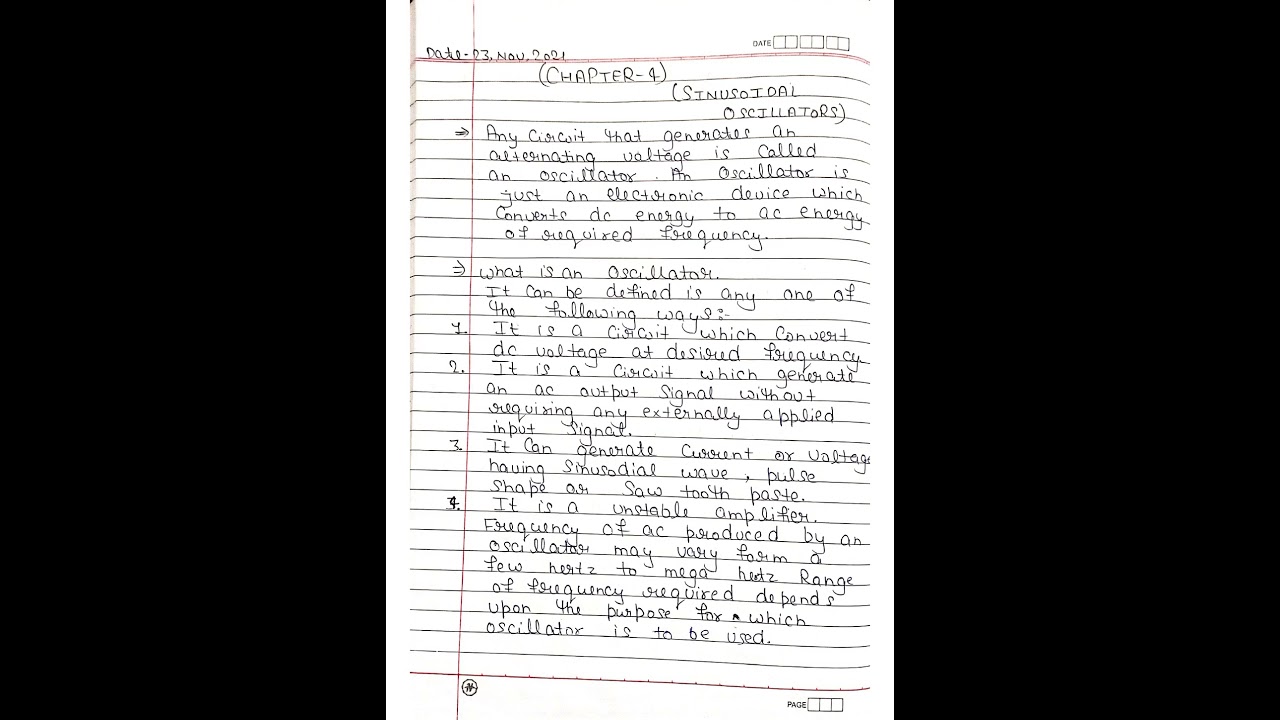 DATE
Date-23, Nov, 2021
(CHAPTER-4)
(SINUSOIDAL
OSCILLATORS)
⇒ Any Circuit that generates an
alternating voltage is called
an oscillator. An Oscillator is
just an electronic device which
Converts dc energy to ac energy
of required frequency.
⇒ What is an Oscillator.
It Can be defined is any one of
the following ways:-
1. It is a circuit which Convert
dc voltage at desired frequency
2. It is a Circuit which generate
an ac output Signal without
requising any externally applied
input Signal.
3. It Can generate Current or voltage
having Sinusodial wave, pulse
Shape or Saw tooth paste.
4. It is a unstable amplifier.
Frequency of ac produced by an
oscillator may vary form a
few hertz to mega hertz Range
of frequency required depends
upon the purpose for which
oscillator is to be used.
PAGE